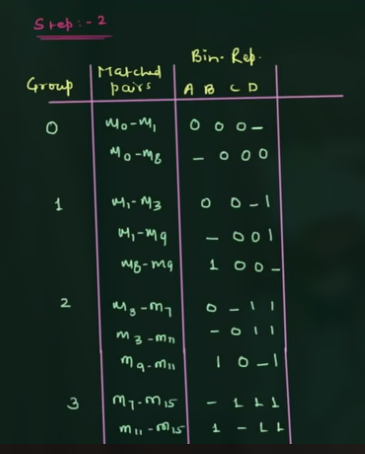 Step:- 2
Group Matched pairs Bin. Rep.
A B C D
0 m0-m1 0 0 0 -
m0-m8 - 0 0 0
1 m1-m3 0 0 - 1
m1-m9 - 0 0 1
m8-m9 1 0 0 -
2 m3-m7 0 - 1 1
m3-m11 - 0 1 1
m9-m11 1 0 - 1
3 m7-m15 - 1 1 1
m11-m15 1 - 1 1